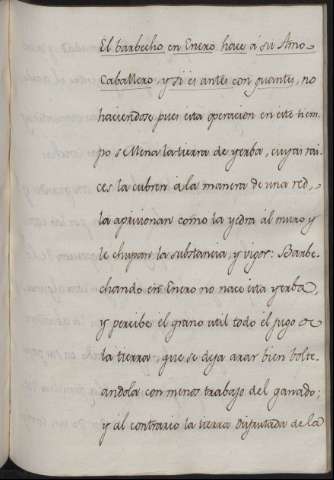 El barbecho en Enero hace á su Amo
Caballero, y si es antes con guantes, no
haciendose pues esta operacion en este tiem-
po se llena la tierra de yerba, cuyas rai-
ces la cubren á la manera de una red,
la aprisionan como la yedra al muro y
le chupan la substancia, y vigor: Barbe-
chando en Enero no nace esta yerba,
y percibe el grano util todo el jugo de
la tierra, que se deja arar bien bolte-
andola con menos trabajo del ganado;
y al contrario la tierra disputada de la